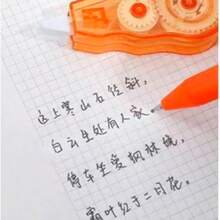 远上寒山石径斜，
白云生处有人家。
停车坐爱枫林晚，
霜叶红于二月花。